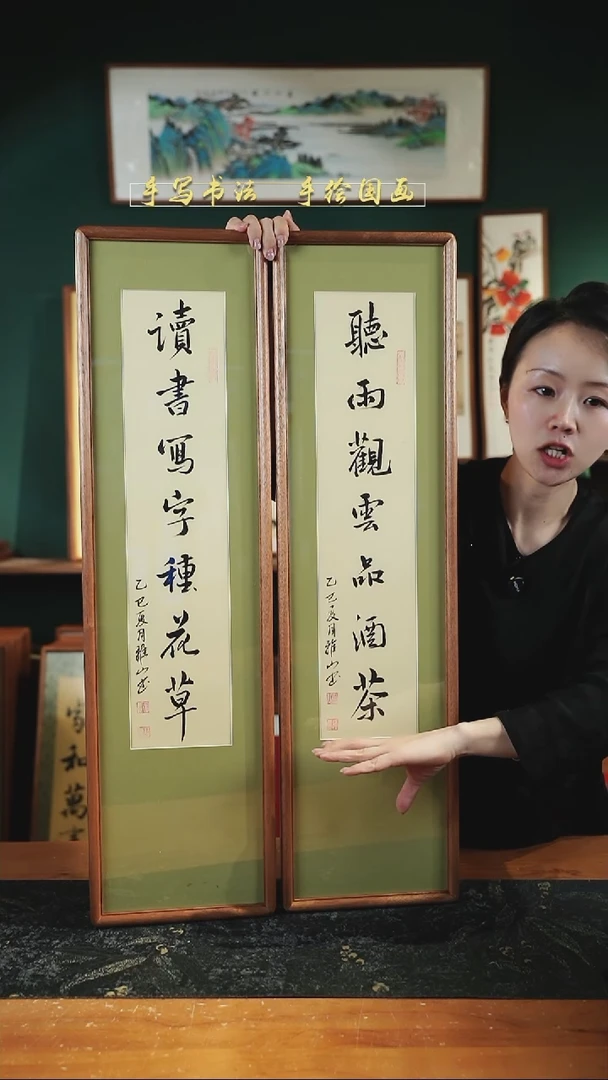 手写书法 手绘国画
聽雨觀雲品酒茶
乙巳夏月雅山書
讀書寫字種花草
乙巳夏月雅山書
家和萬事